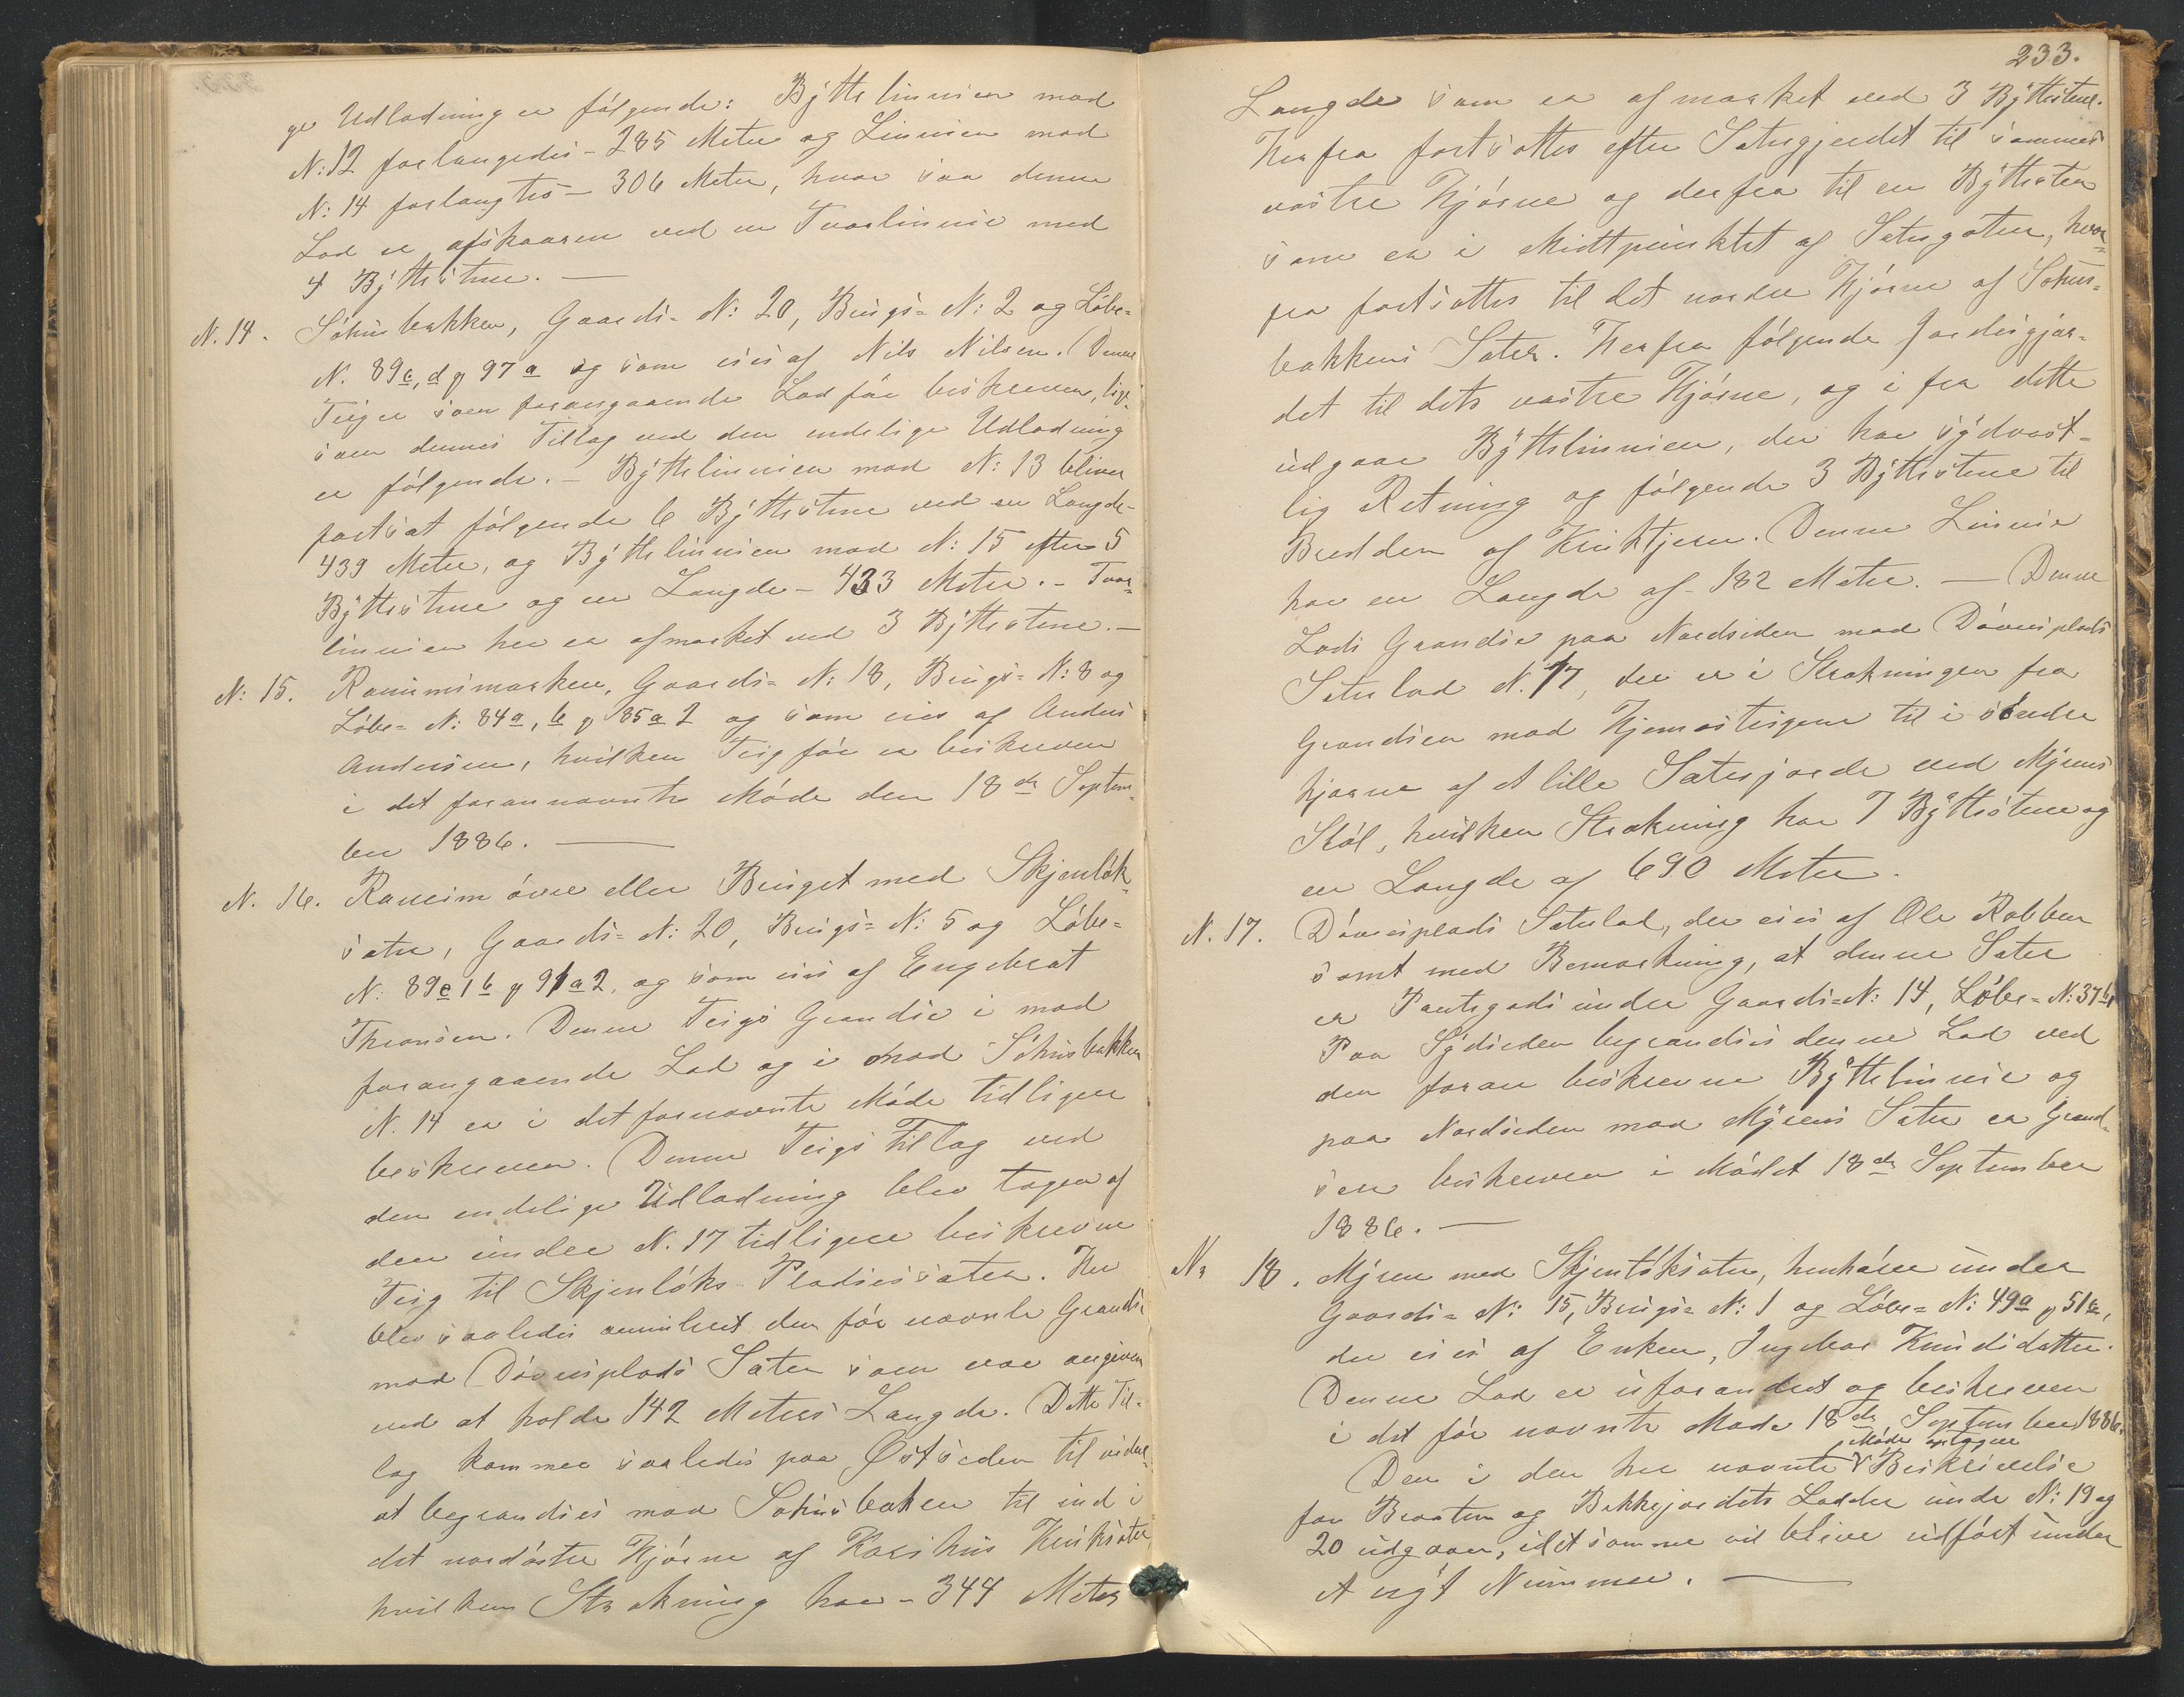 ge Udlodning er følgende: Býttelinnien mod
N: 12 forlængedes - 285 Meter og Linnien mod
N: 14 forlængtes - 306 Meter, hvor saa denne
Lod er afskaaren ved en Tværlinnie med
4 Býttestene. —
N. 14. Søhusbakken, Gaards- N: 20, Brugs- N: 2 og Løbe-
N. 89c, d og 97a og som eies af Nils Nilsen. Denne
Teig er som forangaaende Lod før beskreven, lige-
som dennes Tillæg ved den endelige Udlodning
er følgende. - Býttelinnien mod N: 13 bliver
fortsat følgende 6 Býttestene ved en Længde-
439 Meter, og Býttelinnien mod N: 15 efter 5
Býttestene og en Længde - 433 Meter. - Tvær-
linnien her er afmærket ved 3 Býttestene. -
N: 15. Gaards- N: 18, Brugs- N: 8 og
Løbe- N: 84a, b og 85a2 og som eies af Anders
Andersen, hvilken Teig før er beskreven
i det forannævnte Møde den 18de Septem-
ber 1886. —
N. 16. øvre eller Bruget med Skjenløk-
sæter, Gaards- N: 20, Brugs- N: 5 og Løbe-
N: 89e1b og 91a2, og som eies af Engebret
Thronsen. Denne Teigs Grændse i mod
forangaaende Lod og i mod Søhusbakken
N. 14 er i det fornævnte Møde tidligere
beskreven. Denne Teigs Tillæg ved
den endelige Udlodning blev tagen af
den under N. 17 tidligere beskrevne
Teig til Skjenløks Pladsessæter. Her
blev saaledes den før nævnte Grændse
mod Døvesplads Sæter som var angiven
ved at holde 142 Meters Længde. Dette Til-
læg kommer saaledes paa Østsiden til videre
at begrændses mod Søhusbakken til ind i
det nordøstre Hjørne af Karihus
hvilken Strækning har - 344 Meter
233.
Længde som er afmærket ved 3 Býttestene.
Herfra fortsættes efter Sætergjerdet til sammes
vestre Hjørne og derfra til en Býttesten
som er i Midtpunktet af Sætergaten, hvor-
fra fortsættes til det nordre Hjørne af Søhus-
bakkens Sæter. Herfra følgende Jordesgjær-
det til dets vestre Hjørne, og i fra dette
udgaar Býttelinnien, der har sýdvest-
lig Retning og følgende 3 Býttestene til
Bredden af Kruktjern. Denne Linnie
har en Længde af - 182 Meter. — Denne
Lods Grændse paa Nordsiden mod Døvesplads
Sæterlod N. 17, der er i Strækningen fra
Grændsen mod Hjemosteigene til i søndre
Hjørne af et lille Sæterjorde ved Mýrens
Støl, hvilken Strækning har 7 Býttestene og
en Længde af 690 Meter.
N. 17. Døvesplads Sæterlod, der eies af Ole Robben
samt med Bemærkning, at denne Sæter
er Pantegods under Gaards- N: 14, Løbe- N: 37b
Paa Sýdsiden begrændses denne Lod ved
den foran beskrevne Býttelinnie og
paa Nordsiden mod Mýrens Sæter er Grænd-
sen beskreven i Mødet 18de September
1886. —
No 18. Mýren med Skjenløksæter, henhører under
Gaards- N: 15, Brugs- N: 1 og Løbe- N: 49a og 51a,
der eies af Enken, Ingebor Knudsdatter.
Denne Lod er uforandret og beskreven
i det før nævnte Møde 18de September 1886.
Den i den her nævnte Møde optagne Beskrivelse
for Braaten og Bekkejordets Lodder under N: 19 og
20 udgaar, idet samme vil blive udført under
et nýt Nummer. —